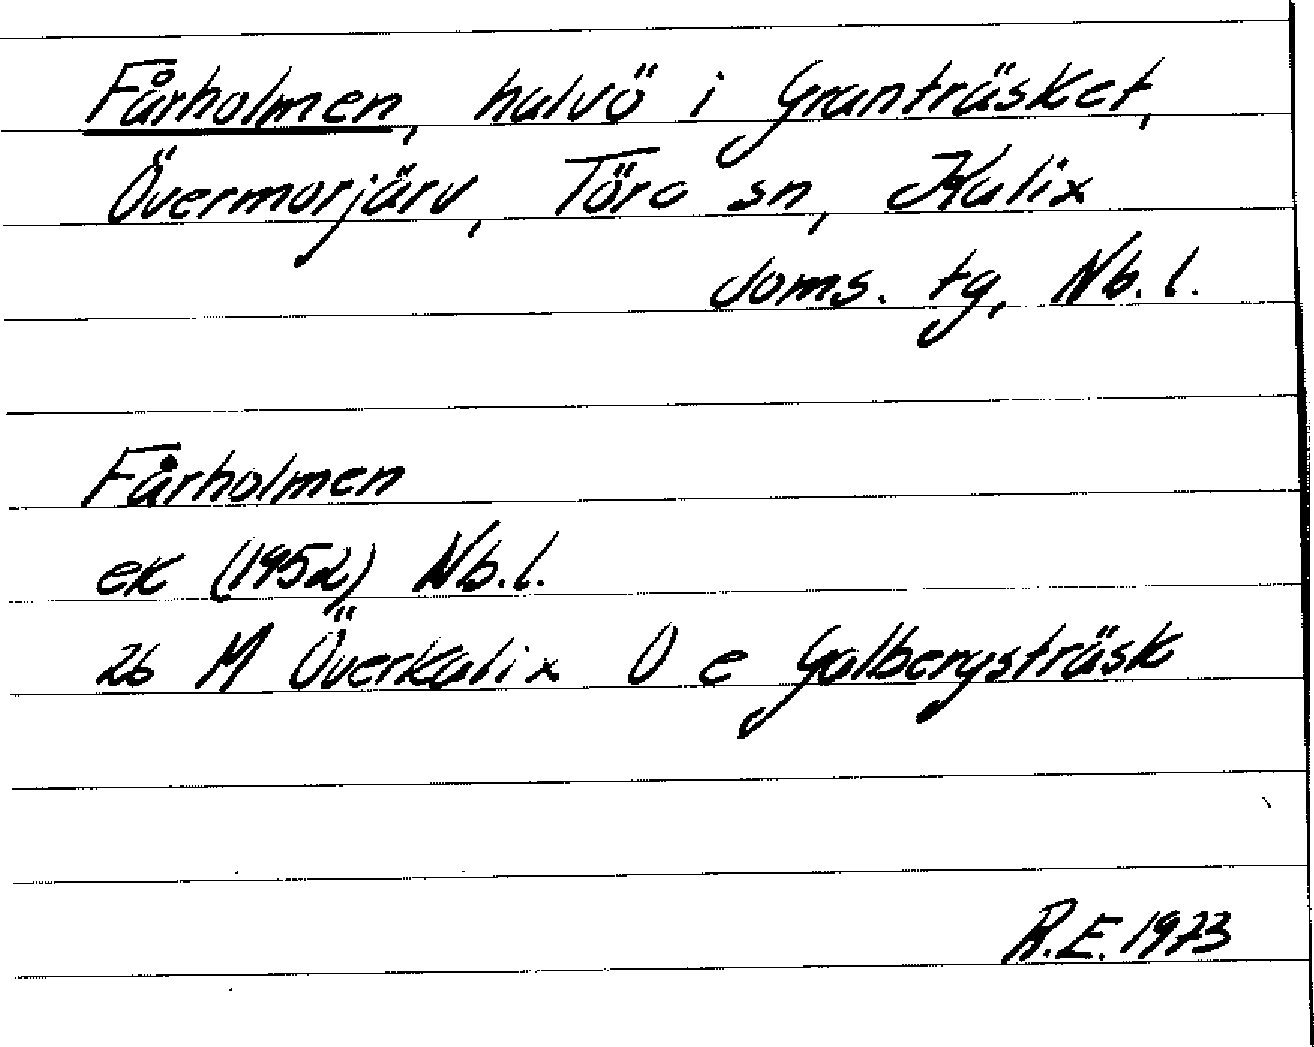 Fårholmen, halvö i Granträsket,
Övermorjärv, Töre sn, Kalix
doms. tg, Nb. l.
Fårholmen
ek (1952) Nb. l.
26 M Överkalix 0 e Galbergsträsk
R.E. 1973